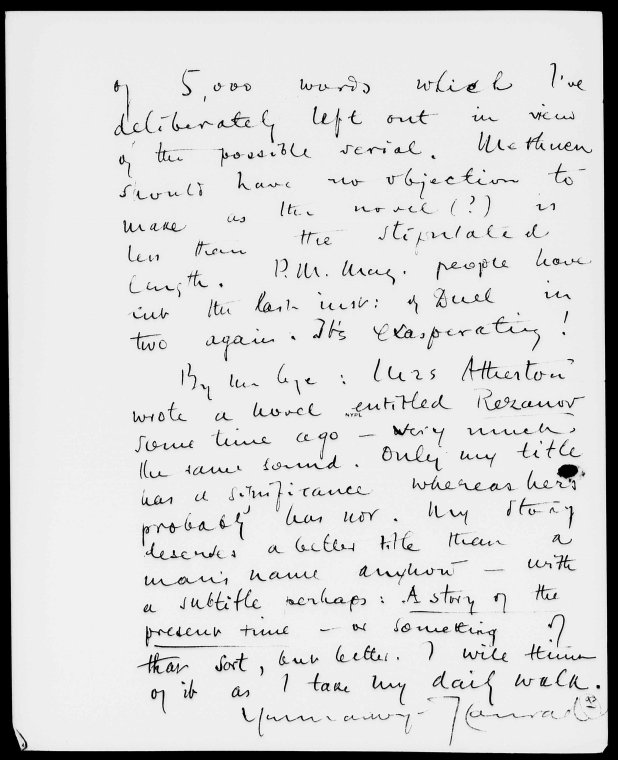 of 5,000 words which I've
deliberately left out in view
of the possible serial. Methuen
should have no objection to
make as the novel (?) is
less than the stipulated
length. P.M. Mag. people have
cut the last inst: of Duel in
two again. It's exasperating!
By the bye: Mrs Atherton
wrote a novel entitled Rezanov
NYPL
some time ago – very much
the same sound. Only my title
has a significance whereas her's
probably has not. My story
deserves a better title than a
man's name anyhow – with
a subtitle perhaps: A story of the
present time – or something of
that sort, but better. I will think
of it as I take my daily walk.
Conrad